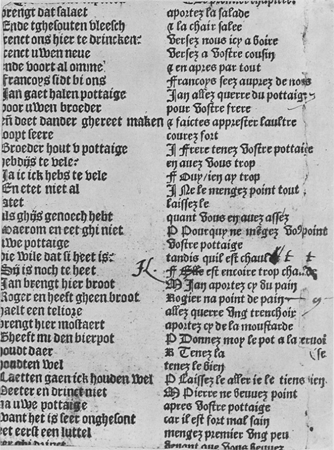 brengt dat salaet
Ende tghesouten vleesch
scenct ons hier te drincken:
scenct uwen neve
ende voort al omme
Francoys sidt bi ons
Jan gaet halen pottaige
voor uwen broeder
doet dander ghereet maken
loopt seere
Broeder hout v pottaige
hebdijs te vele:
Ja ic ick hebs te vele
En etet niet al
latet
als ghijs genoech hebt
Waerom en eet ghi niet
uwe pottaige
die wile dat si heet is:
Sij is noch te heet
Jan brengt hier broot
Roger en heeft gheen broot
haelt een teliore
brengt hier mostaert
Gheeft mi den bierpot
houdt daer
houdten wel
Laetten gaen ick houden wel
Peeter en drinct niet
na uwe pottaige
want het is seer onghesont
eet eerst een luttel
aportez la salade
& la chair salee
Versez nous icy a boire
Versez a vostre cousin
& en apres par tout
Francoys seez aupres de nous
Jan allez querre du pottaige
pour vostre frere
& faictes apprester laultre
courez fort
J Frere tenez vostre pottaige
en avez vous trop
F Ouy ien ay trop
J Ne le mengez point tout
laissez le
quant vous en avez assez
P Pourquoy ne mengez vo point
vostre pottaige
tandis quil est chault
F Elle est encoire trop cha
M Jan aportez cy du pain
Rogier na point de pain
allez querre vng trenchoir
aportez cy de la moustarde
P Donnez moy le pot a la cervoi
R Tenez la (se
tenez le bien
P Laissez le aller ie le tiens bien
M Pierre ne beuvez point
apres vostre pottaige
car il est fort mal sain
mengez premier vng peu
devant que vous beuvez